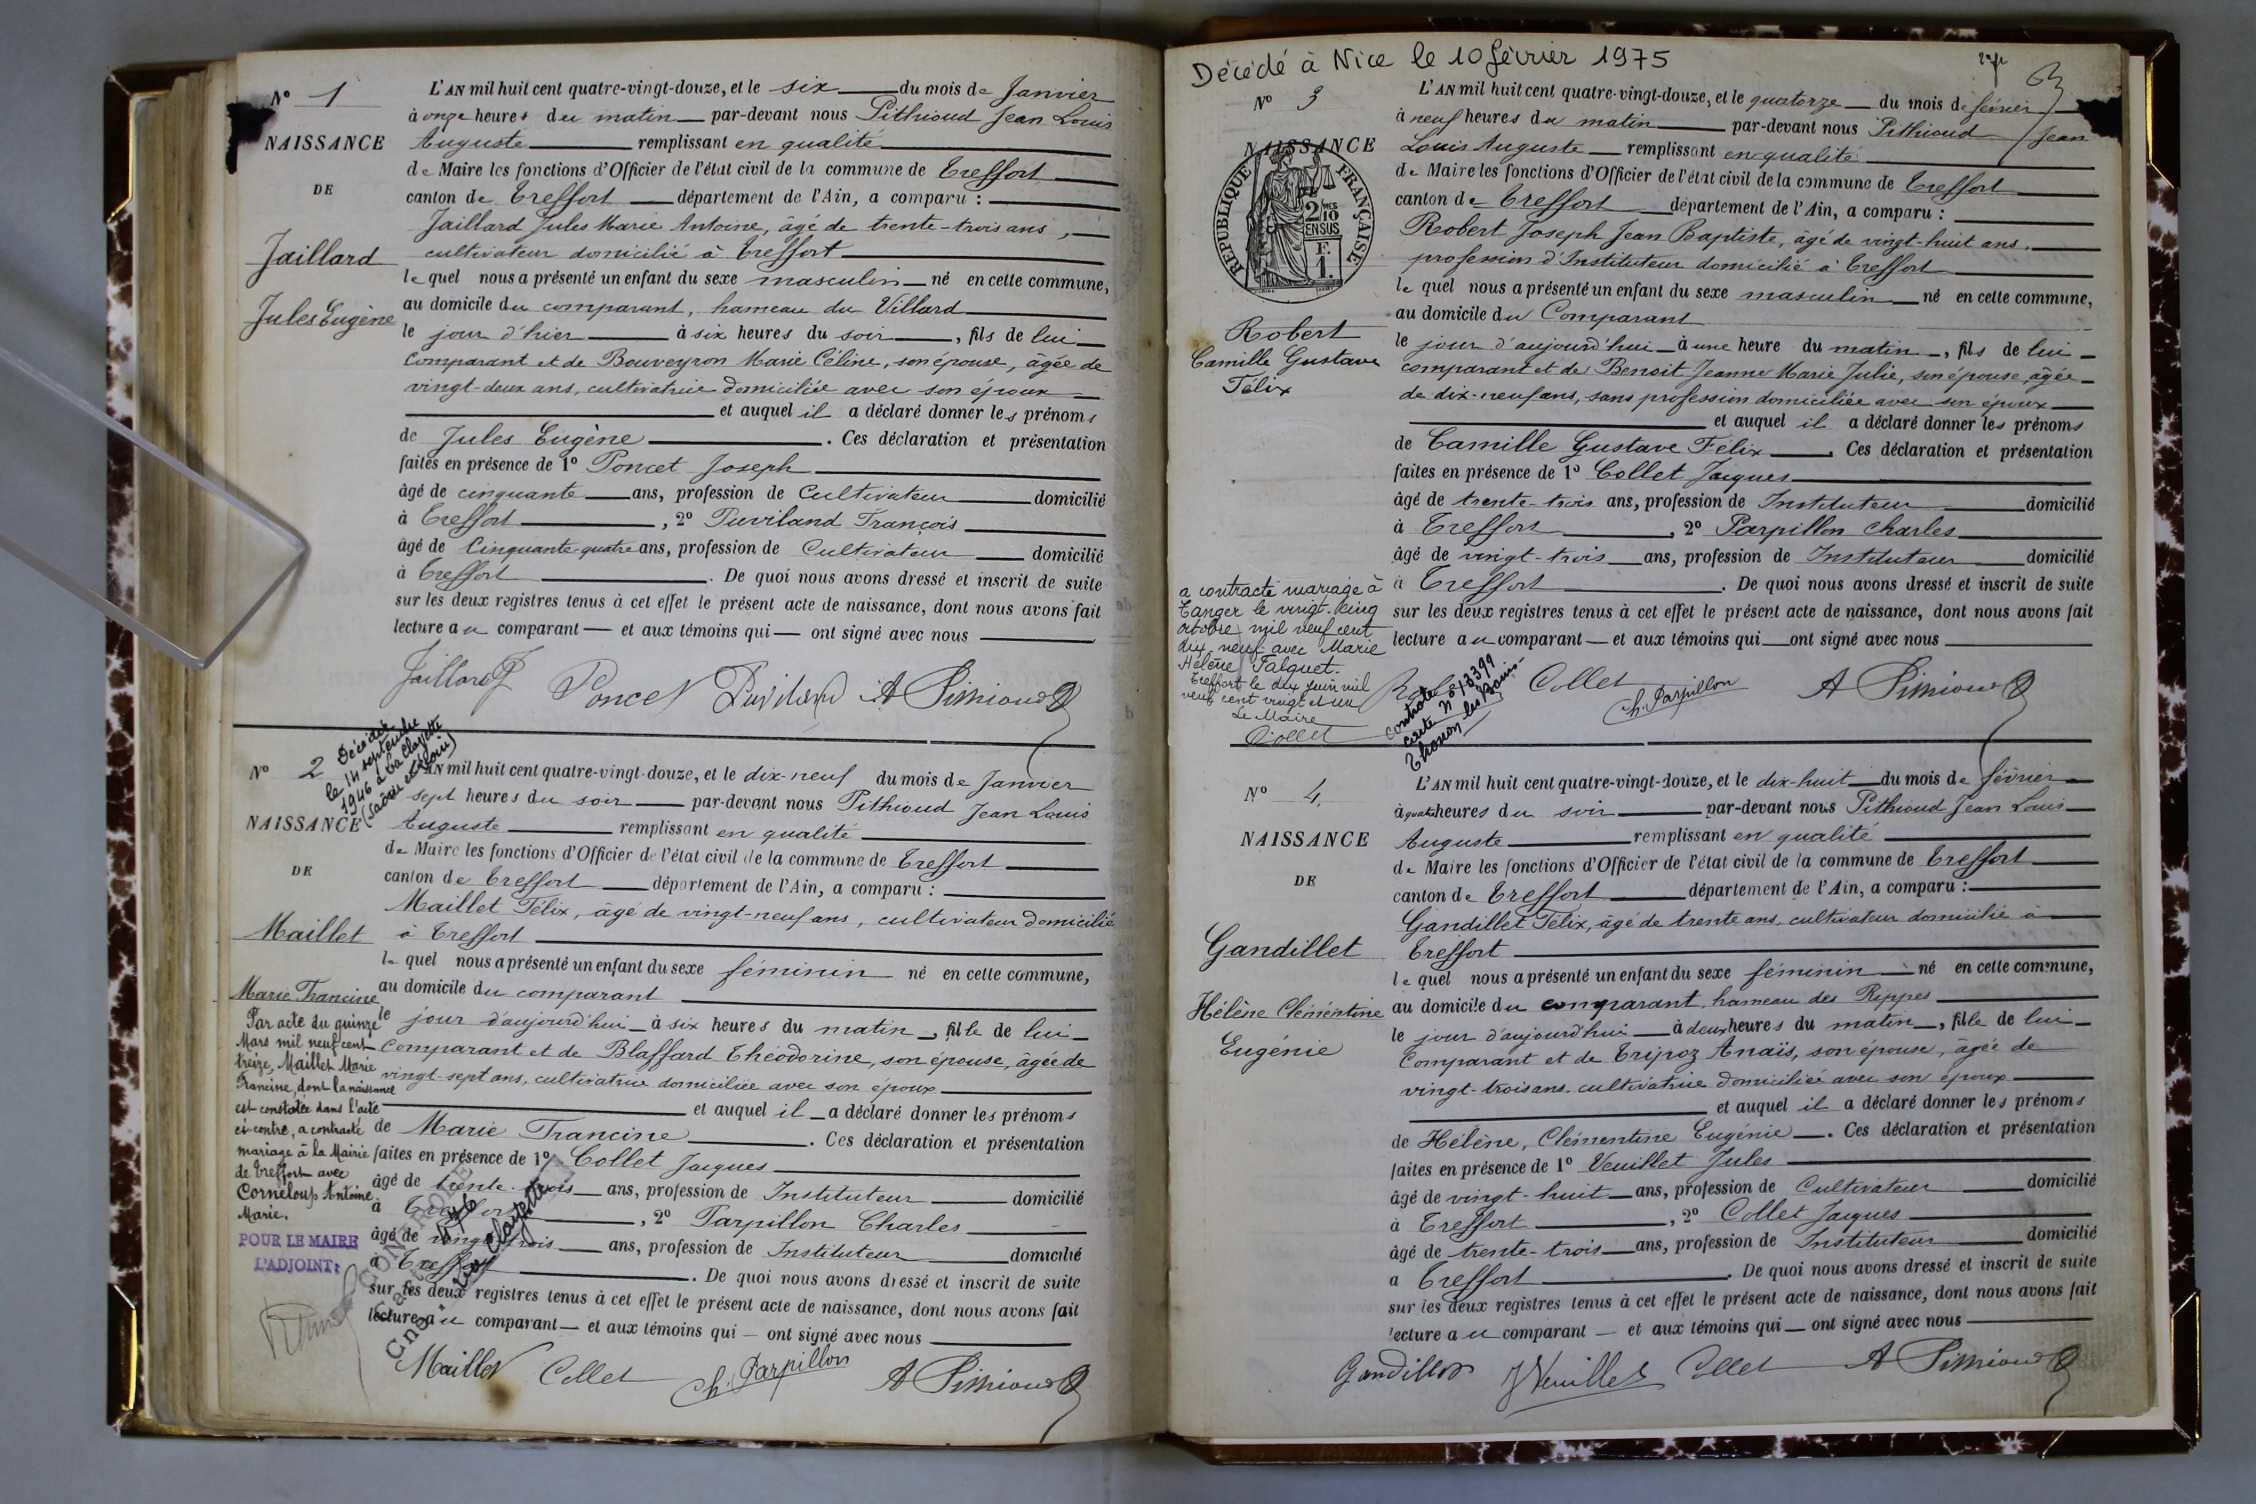 Nº 1
NAISSANCE
DE
Jaillard
Jules Eugène
L'AN mil huit cent quatre-vingt-douze, et le six du mois de Janvier
à onze heures du matin par-devant nous Pithioud Jean Louis
Auguste remplissant en qualité
de Maire les fonctions d'Officier de l'état civil de la commune de Treffort
canton de Treffort département de l'Ain, a comparu :
Jaillard Jules Marie Antoine, âgé de trente-trois ans,
cultivateur domicilié à Treffort
lequel nous a présenté un enfant du sexe masculin né en cette commune,
au domicile du comparant, hameau du Villard
le jour d'hier à six heures du soir, fils de lui
comparant et de Bouveyron Marie Céline, son épouse, âgée de
vingt-deux ans, cultivatrice domiciliée avec son époux
et auquel il a déclaré donner les prénoms
de Jules Eugène. Ces déclaration et présentation
faites en présence de 1º Poncet Joseph
âgé de cinquante ans, profession de Cultivateur domicilié
à Treffort, 2º Puviland François
âgé de Cinquante-quatre ans, profession de Cultivateur domicilié
à Treffort. De quoi nous avons dressé et inscrit de suite
sur les deux registres tenus à cet effet le présent acte de naissance, dont nous avons fait
lecture au comparant et aux témoins qui ont signé avec nous
Jaillard J Poncet Puviland A Pithioud
Nº 2
Décédée
le 14 septembre
1946 à La Clayette
(Saône et Loire)
NAISSANCE
DE
Maillet
Marie Francine
Par acte du quinze
Mars mil neuf cent
treize, Maillet Marie
Francine, dont la naissance
est constatée dans l'acte
ci-contre, a contracté
mariage à la Mairie
de Treffort avec
Corneloup Antoine
Marie.
POUR LE MAIRE
L'ADJOINT:
L'AN mil huit cent quatre-vingt-douze, et le dix-neuf du mois de Janvier
sept heures du soir par-devant nous Pithioud Jean Louis
Auguste remplissant en qualité
de Maire les fonctions d'Officier de l'état civil de la commune de Treffort
canton de Treffort département de l'Ain, a comparu :
Maillet Félix, âgé de vingt-neuf ans, cultivateur domicilié
à Treffort
lequel nous a présenté un enfant du sexe féminin né en cette commune,
au domicile du comparant
le jour d'aujourd'hui à six heures du matin, fille de lui
comparant et de Blaffard Théodorine, son épouse, âgée de
vingt-sept ans, cultivatrice domiciliée avec son époux
et auquel il a déclaré donner les prénoms
de Marie Francine. Ces déclaration et présentation
faites en présence de 1º Collet Jacques
âgé de trente-trois ans, profession de Instituteur domicilié
à Treffort, 2º Parpillon Charles
âgé de vingt-trois ans, profession de Instituteur domicilié
à Treffort. De quoi nous avons dressé et inscrit de suite
sur les deux registres tenus à cet effet le présent acte de naissance, dont nous avons fait
lecture au comparant et aux témoins qui ont signé avec nous
CONTROLE
Maillet Collet Ch. Parpillon A Pithioud
Décédé à Nice le 10 février 1975
Nº 3
NAISSANCE
REPUBLIQUE FRANÇAISE
2/10
EN SUS
F.
1.
Robert
Camille Gustave
Félix
a contracté mariage à
Tanger le vingt-cinq
octobre mil neuf cent
dix neuf avec Marie
Hélène Falquet.
Treffort le dix juin mil
neuf cent vingt et un
Le Maire
Collet
L'AN mil huit cent quatre-vingt-douze, et le quatorze du mois de février
à neuf heures du matin par-devant nous Pithioud Jean
Louis Auguste remplissant en qualité
de Maire les fonctions d'Officier de l'état civil de la commune de Treffort
canton de Treffort département de l'Ain, a comparu :
Robert Joseph Jean Baptiste, âgé de vingt-huit ans,
profession d'Instituteur domicilié à Treffort
lequel nous a présenté un enfant du sexe masculin né en cette commune,
au domicile du Comparant
le jour d'aujourd'hui à une heure du matin, fils de lui
comparant et de Benoit Jeanne Marie Julie, son épouse, âgée
de dix-neuf ans, sans profession domiciliée avec son époux
et auquel il a déclaré donner les prénoms
de Camille Gustave Félix. Ces déclaration et présentation
faites en présence de 1º Collet Jacques
âgé de trente-trois ans, profession de Instituteur domicilié
à Treffort, 2º Parpillon Charles
âgé de vingt-trois ans, profession de Instituteur domicilié
à Treffort. De quoi nous avons dressé et inscrit de suite
sur les deux registres tenus à cet effet le présent acte de naissance, dont nous avons fait
lecture au comparant et aux témoins qui ont signé avec nous
Collet Ch. Parpillon A Pithioud
contrôle
carte Nº 13399
Thonon les Bains
Nº 4
NAISSANCE
DE
Gandillet
Hélène Clémentine
Eugénie
L'AN mil huit cent quatre-vingt-douze, et le dix-huit du mois de février
à quatre heures du soir par-devant nous Pithioud Jean Louis
Auguste remplissant en qualité
de Maire les fonctions d'Officier de l'état civil de la commune de Treffort
canton de Treffort département de l'Ain, a comparu :
Gandillet Félix, âgé de trente ans, cultivateur domicilié à
Treffort
lequel nous a présenté un enfant du sexe féminin né en cette commune,
au domicile du comparant, hameau des Rippes
le jour d'aujourd'hui à deux heures du matin, fille de lui
comparant et de Tripoz Anaïs, son épouse, âgée de
vingt-trois ans, cultivatrice domiciliée avec son époux
et auquel il a déclaré donner les prénoms
de Hélène, Clémentine Eugénie. Ces déclaration et présentation
faites en présence de 1º Veuillet Jules
âgé de vingt-huit ans, profession de Cultivateur domicilié
à Treffort, 2º Collet Jacques
âgé de trente-trois ans, profession de Instituteur domicilié
à Treffort. De quoi nous avons dressé et inscrit de suite
sur les deux registres tenus à cet effet le présent acte de naissance, dont nous avons fait
lecture au comparant et aux témoins qui ont signé avec nous
Gandillet J Veuillet Collet A Pithioud